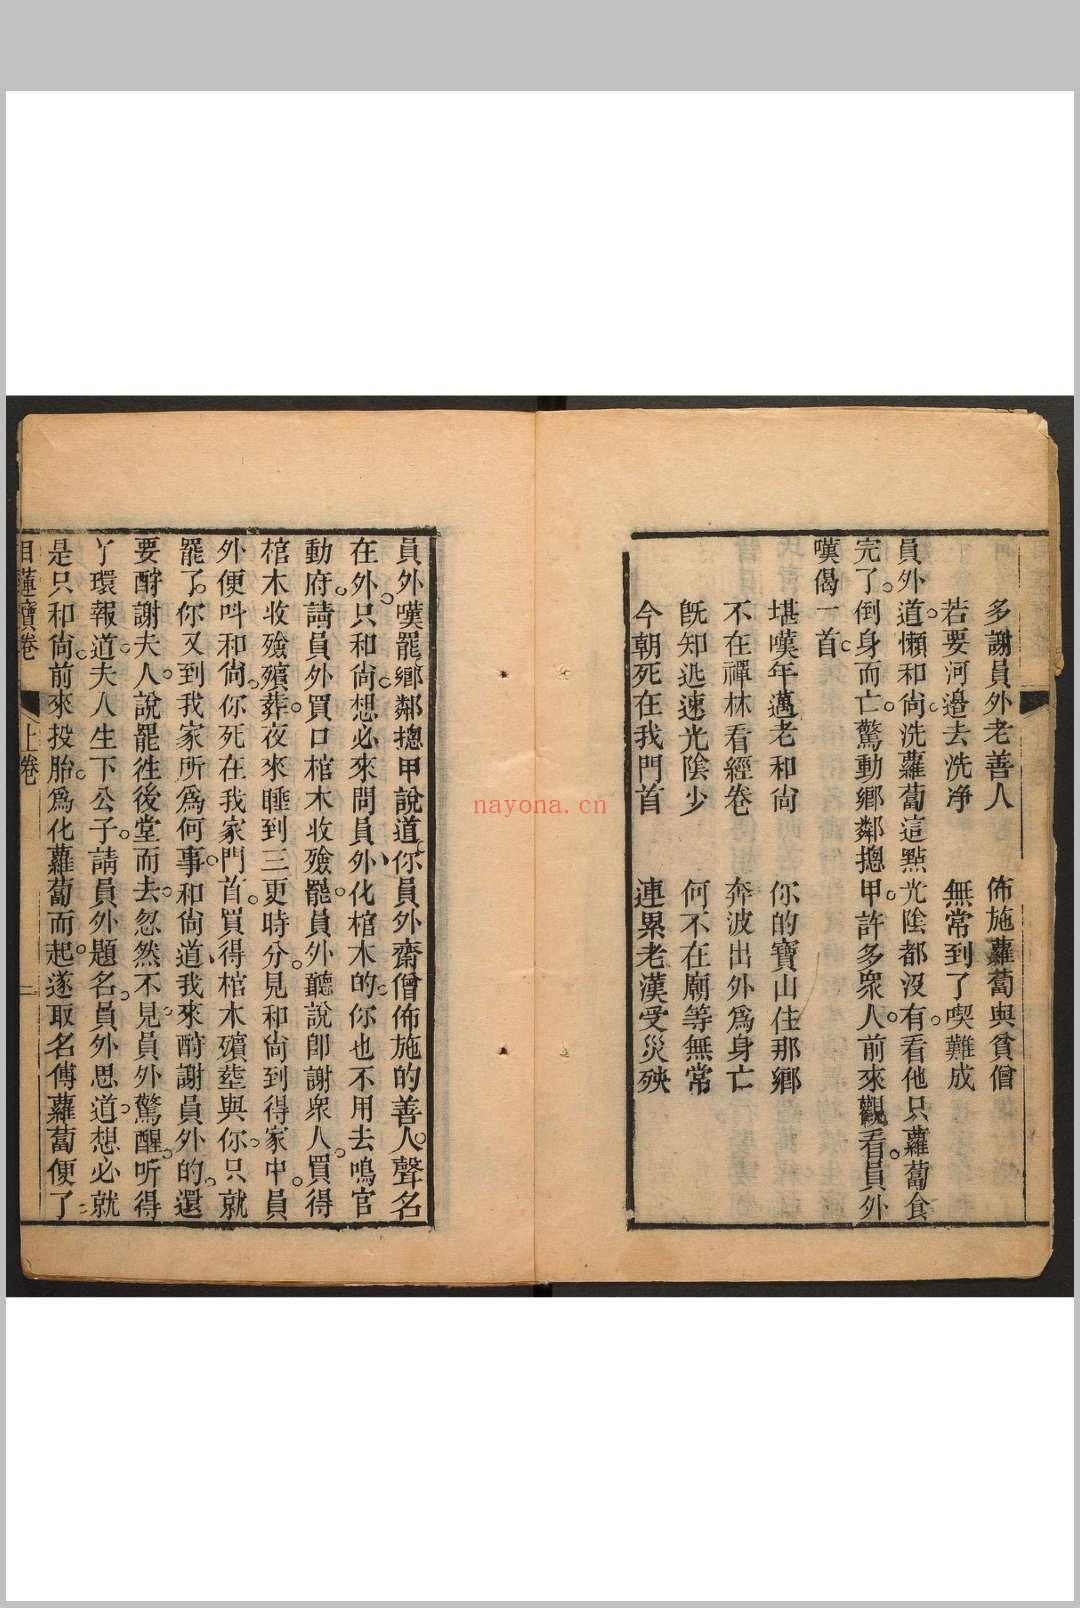 多謝員外老善人　佈施蘿蔔與貧僧
若要河邉去洗净　無常到了喫難成
員外道懶和尙洗蘿蔔這㸃光陰都沒有看他只蘿蔔食
完了倒身而亡驚動鄕鄰摠甲許多衆人前來觀看員外
嘆偈一首
堪嘆年邁老和尙　你的寶山住那鄕
不在禪林看經卷　奔波出外爲身亡
旣知迯速光陰少　何不在廟等無常
今朝死在我門首　連累老漢受災殃
員外嘆罷鄕鄰摠甲說道你員外齋僧佈施的善人聲名
在外只和尙想必來問員外化棺木的你也不用去鳴官
動府請員外買口棺木收殮罷員外聽說卽謝衆人買得
棺木收殮殯葬夜來睡到三更時分見和尙到得家中員
外便呌和尙你死在我家門首買得棺木殯塟與你只就
罷了你又到我家所爲何事和尙道我來酧謝員外的還
要酧謝夫人說罷徃後堂而去忽然不見員外驚醒听得
丫環報道夫人生下公子請員外題名員外思道想必就
是只和尙前來投胎爲化蘿蔔而起遂取名傅蘿蔔便了
目蓮寶卷　上卷　二
nayona.cn